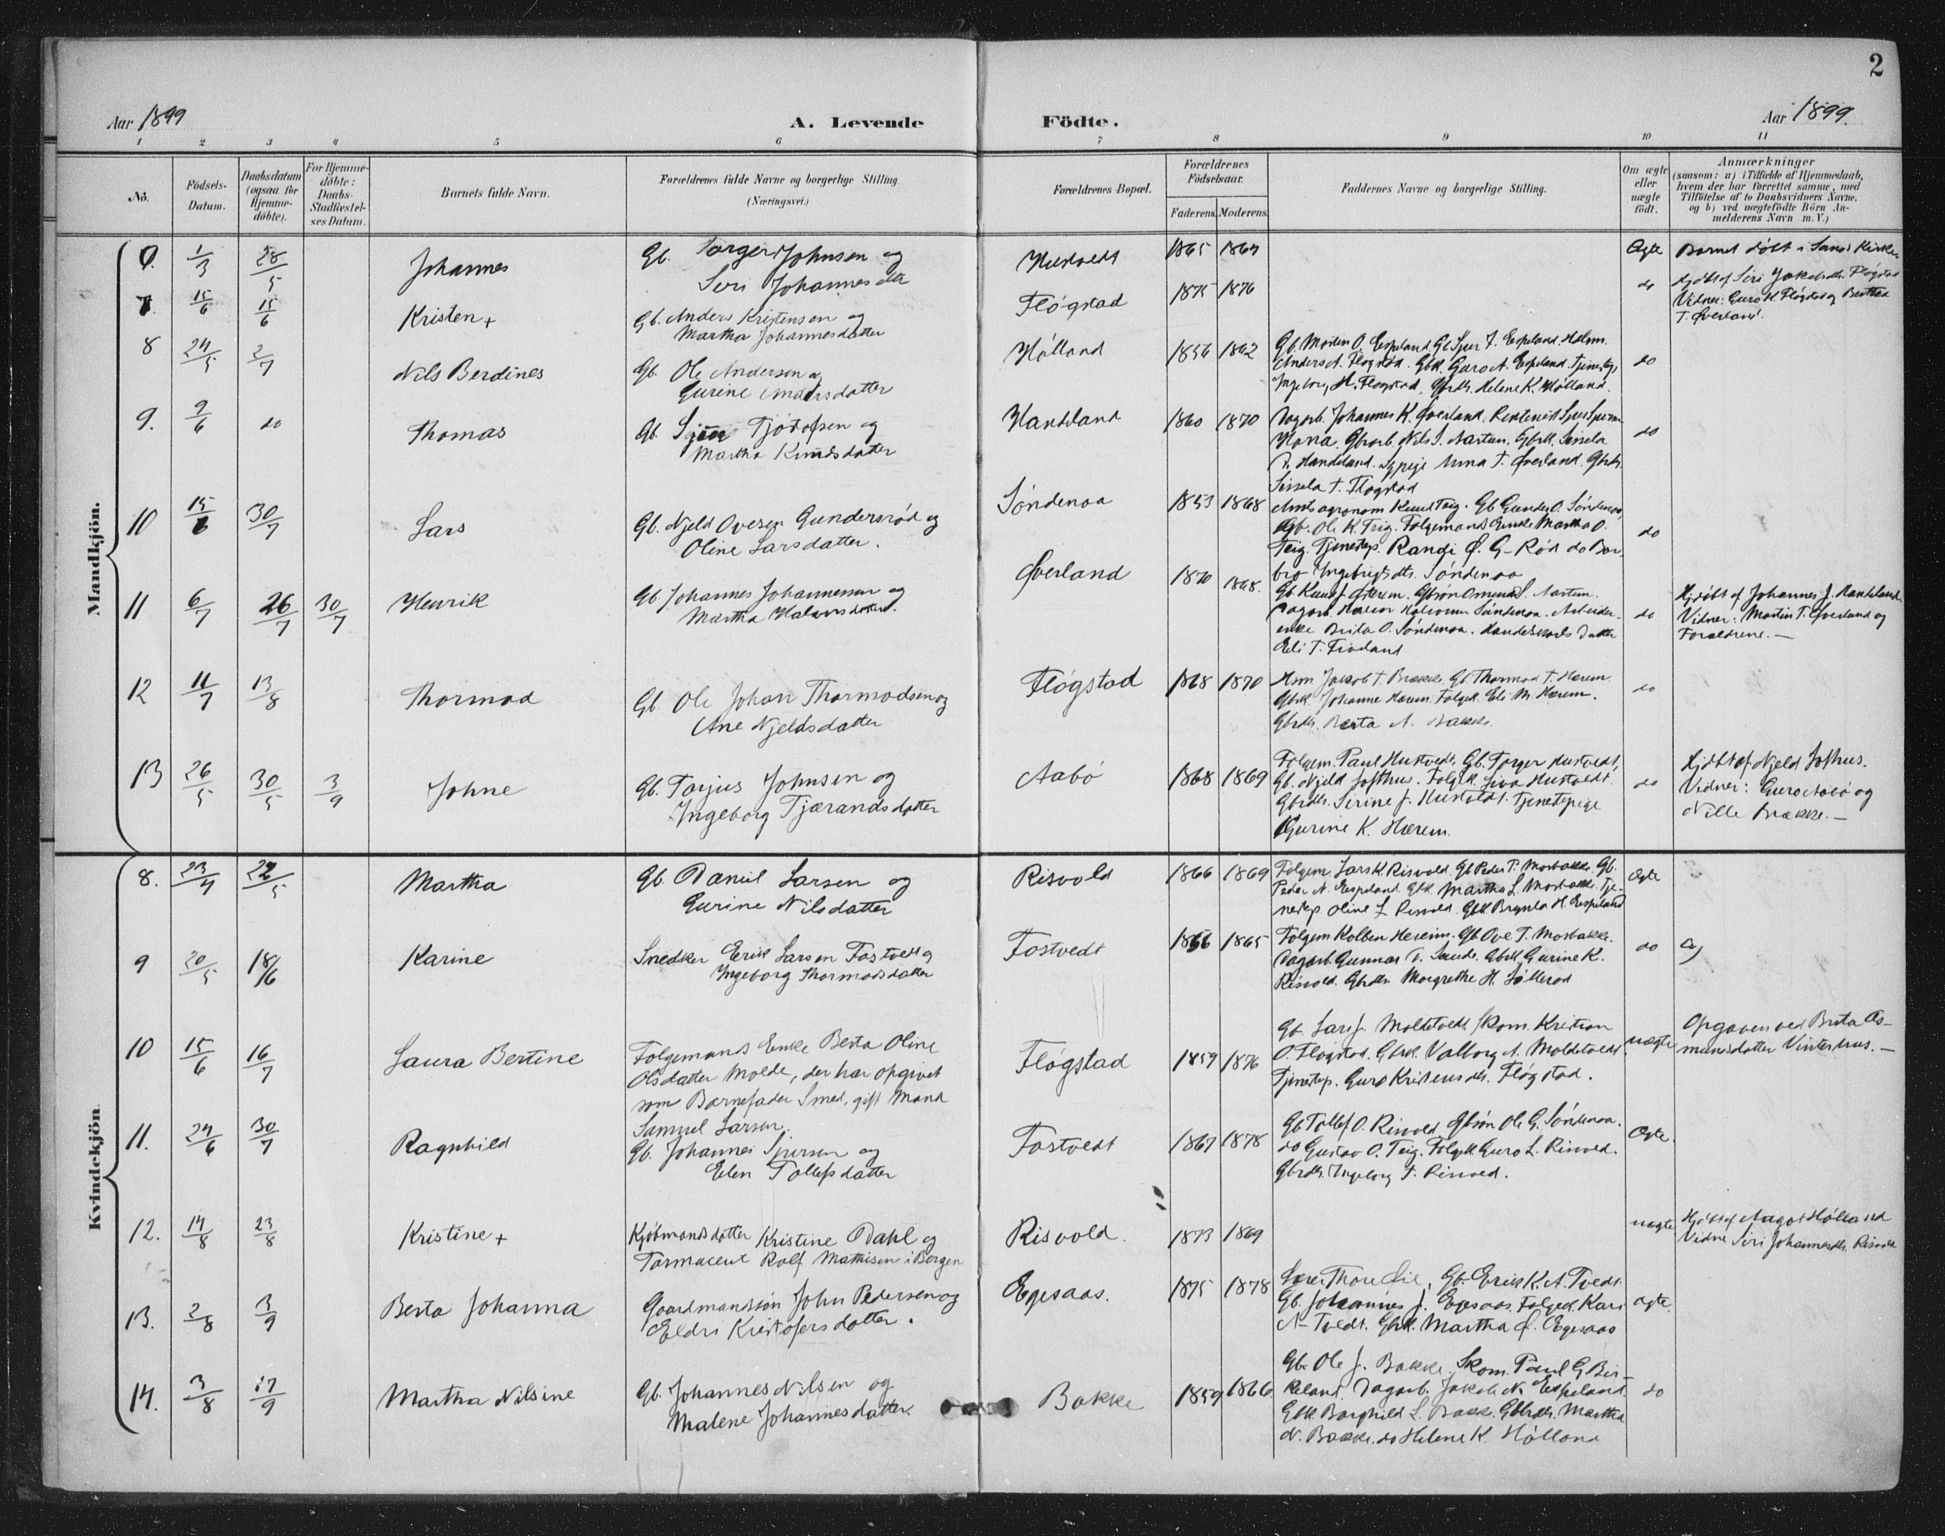 2
Aar 1899
A. Levende
Födte.
Aar 1899.
1 2 3 4 5 6 7 8 9 10 11
No.
Födsels-Datum.
Daabsdatum (ogsaa for Hjemme-döbte).
For Hjemme-döbte: Daabs-Stadfæstel-ses Datum.
Barnets fulde Navn.
Forældrenes fulde Navne og borgerlige Stilling (Næringsvei.)
Forældrenes Bopæl.
Forældrenes Födselsaar.
Faderens. Moderens.
Faddernes Navne og borgerlige Stilling.
Om ægte eller uægte födt.
Anmærkninger
(saasom: a) i Tilfælde af Hjemmedaab,
hvem der har forrettet samme, med
Tilföielse af to Daabsvidners Navne.
og b) ved uægtefödte Börn An-
melderens Navn m. V.)
Mandkjön.
1/3 28/5 Johannes Gb. Torger Johnsen og
Siri Johannesdtr Hustvedt 1865 1869 Ægte Barnet døbt i Sand Kirke
7. 15/6 15/6 Kristen + Gb. Anders Kristensen og
Martha Johannesdatter Fløgstad 1875 1876 do Hjdøbt af Siri Jakobsdtr. Fløgstad
Vidner: Guro K. Fløgstad og Berthea
T. Øverland.
8 24/5 2/7 Nils Berdines Gb. Ole Andersen og
Gurine Andersdatter Hålland 1856 1862 Gb. Morten O. Espeland Gb Sjur T. Espeland Helsm.
Anders A. Fløgstad. Gbk. Guro A. Espeland. Tjenestep.
Ingeborg H. Fløgstad. Gbrdtr. Helene K. Hølland. do
9. 9/6 do Thomas Gb. Sjur Tjødolfsen og
Martha Knudsdatter Handeland 1860 1870 Dagarb. Johannes K. Øverland.
Gbrk. Sissela
T. Handeland. Sypige Anna T. Øverland. Gbrdtr.
Sissela T. Fløgstad do
10 15/6 30/7 Lars Gb. Njeld Ovesen Gundersrød og
Oline Larsdatter. Søndenaa 1853 1868 Amtsagronom Knud Teig. Gb Gunder O. Søndenaa,
Gb. Ole K Teig. Følgemands Enke Martha O.
Teig. Tjenestep. Randi Ø. G-Rød do Bar-
bro Ingebrigtsdtr. Søndenaa do
11 6/7 26/7 30/7 Henrik Gb. Johannes Johannessen og
Martha Halvorsdatter. Øverland 1870 1868. Gb Knud Østerem. Gbsøn Omund S. Nærten.
Dagarb. Halvor Halvorsen Søndenaa. Arbeider-
enke Brita O. Søndenaa. Handelskarls Datter
Eli T. Fivland do Hjdøbt af Johannes J. Handeland.
Vidner: Martin T. Øverland og
Forældrene. —
12 11/7 13/8 Thormod Gb. Ole Johan Thormodsen og
Ane Njeldsdatter Fløgstad 1868 1870 Jakob T. Brække Gb Thormod T. Hærem
Gbrk. Johanne Hærem. Følgek. Eli M. Hærem.
Gbrdtr. Berta A. Bakke. do
13 26/5 30/5 3/9 Johne Gb. Torjus Johnsen og
Ingeborg Tjærandsdatter Aabö 1868 1869 Følgem. Paul Hustvedt, Gb. Torger Hustvedt,
Gb. Njeld Jofthus. Følgk. Siva Hustvedt.
Gbrdtr. Serine J. Hustvedt. Tjenestepige
Gurine K. Hærem. do Hjdøbt af Njeld Jofthus.
Vidner: Guro Aabö og
Nille Brække. —
Kvindekjön.
8. 23/4 22/5 Martha Gb. Daniel Larsen og
Gurine Nilsdatter Risvold 1866 1869 Følgem Lars K Risvold. Gb Peder T. Mosbakke. Gb.
Peder N. Espeland Gbk. Martha L. Mosbakke. Tje-
nestep Oline L Risvold. Gbk Brynla H. Espeland Ægte
9 20/5 18/6 Karine Snedker Erik Larsen Fostvedt og
Ingeborg Thormodsdatter Fostvedt 1856 1865 Følgem Kolben Hereim. Gb Ove T. Mosbakke.
Dagarb Gunnar T. Sande. Gbrk Gurine K.
Risvold. Gbrdtr. Margrethe H. Søllerød do
10 15/6 16/7 Laura Bertine Følgemands Enke Berta Oline
Olsdatter Molde, der har opgivet
som Barnefader Smed, gift Mand
Samuel Larsen. Fløgstad 1859 1876 Gb. Lars J. Moldetvedt Skom. Kristian
O. Fløgstad. Gbrk. Valborg A. Moldetvedt.
Tjenestep. Guro Kristensdtr. Fløgstad. uægte Opgaven ved Brita As-
mundsdatter Vinterhus. —
11. 24/6 30/7 Ragnhild Gb. Johannes Sjursen og
Elen Tollefsdatter Fostvedt 1867 1878 Gb Tollef O. Risvold Gbsøn Ole G. Søndenaa.
do Gustav O. Teig. Følgk Guro L. Risvold.
Gbrdtr. Ingeborg T. Risvold. Ægte.
12. 14/8 23/8 Kristine + Kjøbmandsdatter Kristine Dahl og
Farmaceut Rolf Mathisen i Bergen Risvold. 1873 1869 uægte Hjdøbt af Aagot Hølland
Vidne Siri Johannesdtr. Risvold
13. 2/8 3/9 Berta Johanna Gaardmandssøn John Pedersen og
Eldri Kristofersdatter. Egesaas. 1875 1878 Lærer Thore Lie, Gb. Erik K. A. Tvedt.
Gb. Johannes J. Egesaas. Følgek. Kari
N- Tvedt. Gbrk. Martha Ø. Egesaas ægte.
14. 3/8 17/9 Martha Nilsine Gb. Johannes Nilsen og
Malene Johannesdatter. Bakke 1859 1866 Gb. Ole J. Bakke, Skom. Paul G Bir-
keland. Dagarb. Jakob N. Espeland
Gbk. Borghild L. Bakke. Gbrdtr. Martha
N. Bakke. do Helene K. Hølland do